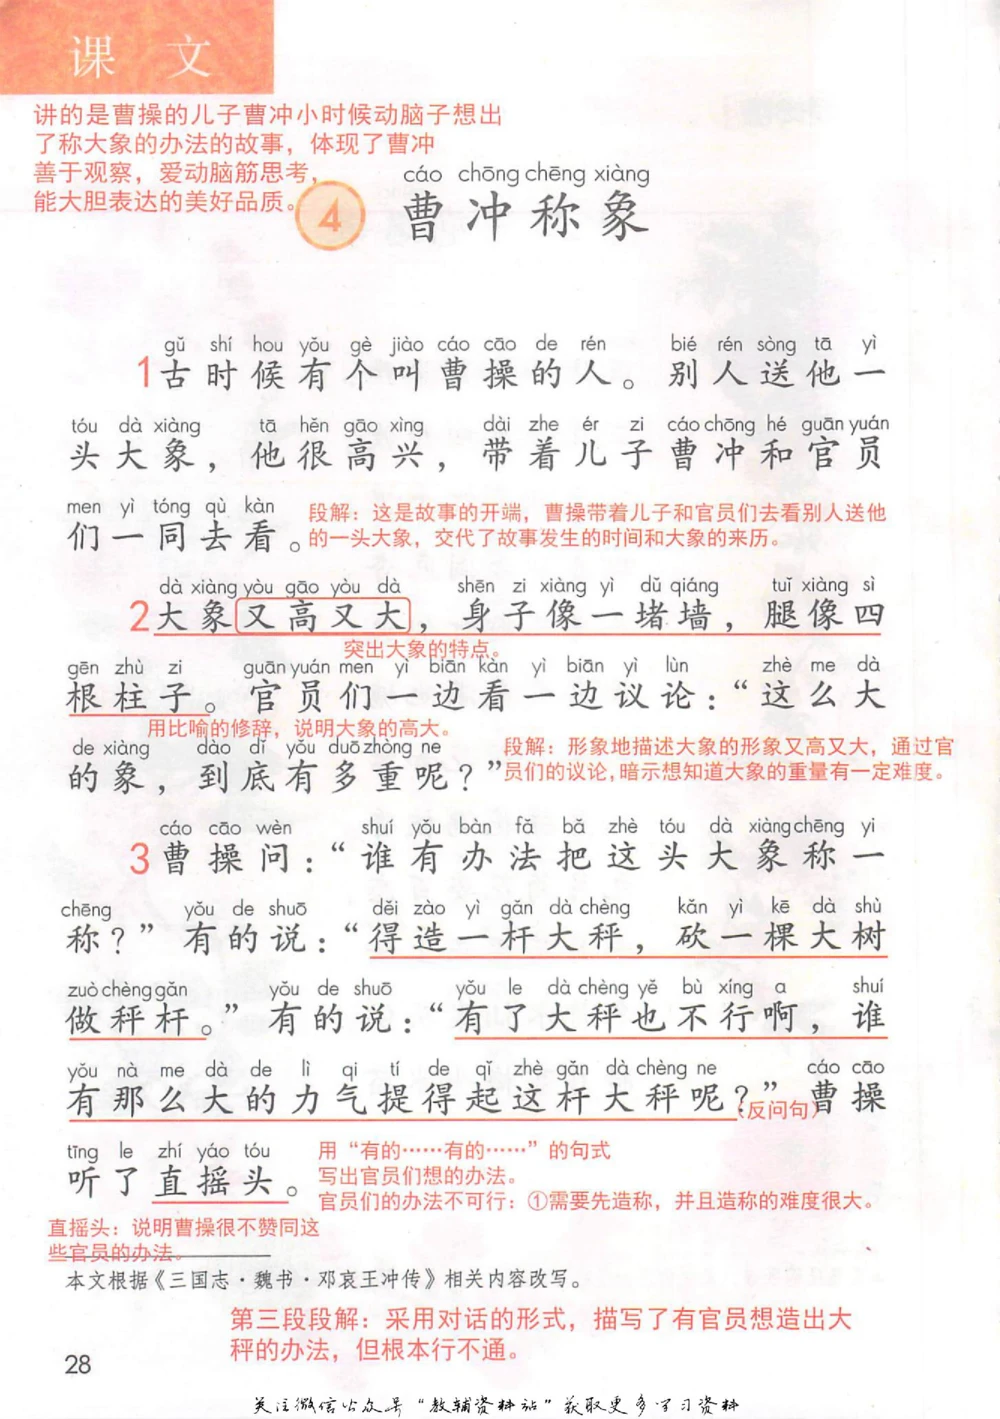 课 文
讲的是曹操的儿子曹冲小时候动脑子想出
了称大象的办法的故事，体现了曹冲
善于观察，爱动脑筋思考，
能大胆表达的美好品质。
cáo chōng chēng xiàng
4 曹冲称象
gǔ shí hou yǒu gè jiào cáo cāo de rén bié rén sòng tā yì
1古时候有个叫曹操的人。别人送他一
tóu dà xiàng tā hěn gāo xìng dài zhe ér zi cáo chōng hé guān yuán
头大象，他很高兴，带着儿子曹冲和官员
men yì tóng qù kàn
们一同去看。
段解：这是故事的开端，曹操带着儿子和官员们去看别人送他
的一头大象，交代了故事发生的时间和大象的来历。
dà xiàng yòu gāo yòu dà shēn zi xiàng yì dǔ qiáng tuǐ xiàng sì
2大象又高又大，身子像一堵墙，腿像四
突出大象的特点。
gēn zhù zi guān yuán men yì biān kàn yì biān yì lùn zhè me dà
根柱子。官员们一边看一边议论：“这么大
用比喻的修辞，说明大象的高大。
de xiàng dào dǐ yǒu duō zhòng ne
的象，到底有多重呢？”
段解：形象地描述大象的形象又高又大，通过官
员们的议论,暗示想知道大象的重量有一定难度。
cáo cāo wèn shuí yǒu bàn fǎ bǎ zhè tóu dà xiàng chēng yi
3曹操问：“谁有办法把这头大象称一
chēng yǒu de shuō děi zào yì gǎn dà chèng kǎn yì kē dà shù
称？”有的说：“得造一杆大秤，砍一棵大树
zuò chèng gǎn yǒu de shuō yǒu le dà chèng yě bù xíng a shuí
做秤杆。”有的说：“有了大秤也不行啊，谁
yǒu nà me dà de lì qi tí de qǐ zhè gǎn dà chèng ne cáo cāo
有那么大的力气提得起这杆大秤呢？”曹操
（反问句）
tīng le zhí yáo tóu
听了直摇头。
用“有的……有的……”的句式
写出官员们想的办法。
官员们的办法不可行：①需要先造称，并且造称的难度很大。
直摇头：说明曹操很不赞同这
些官员的办法。
本文根据《三国志·魏书·邓哀王冲传》相关内容改写。
第三段段解：采用对话的形式，描写了有官员想造出大
秤的办法，但根本行不通。
28
关注微信公众号“教辅资料站”获取更多学习资料